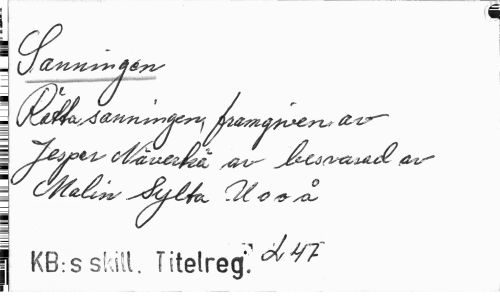 Sanningen
Rätta sanningen, framgiven av
Jesper Näverkä av besvarad av
Malin Sylta U o o å
KB:s skill. Titelreg. L 47